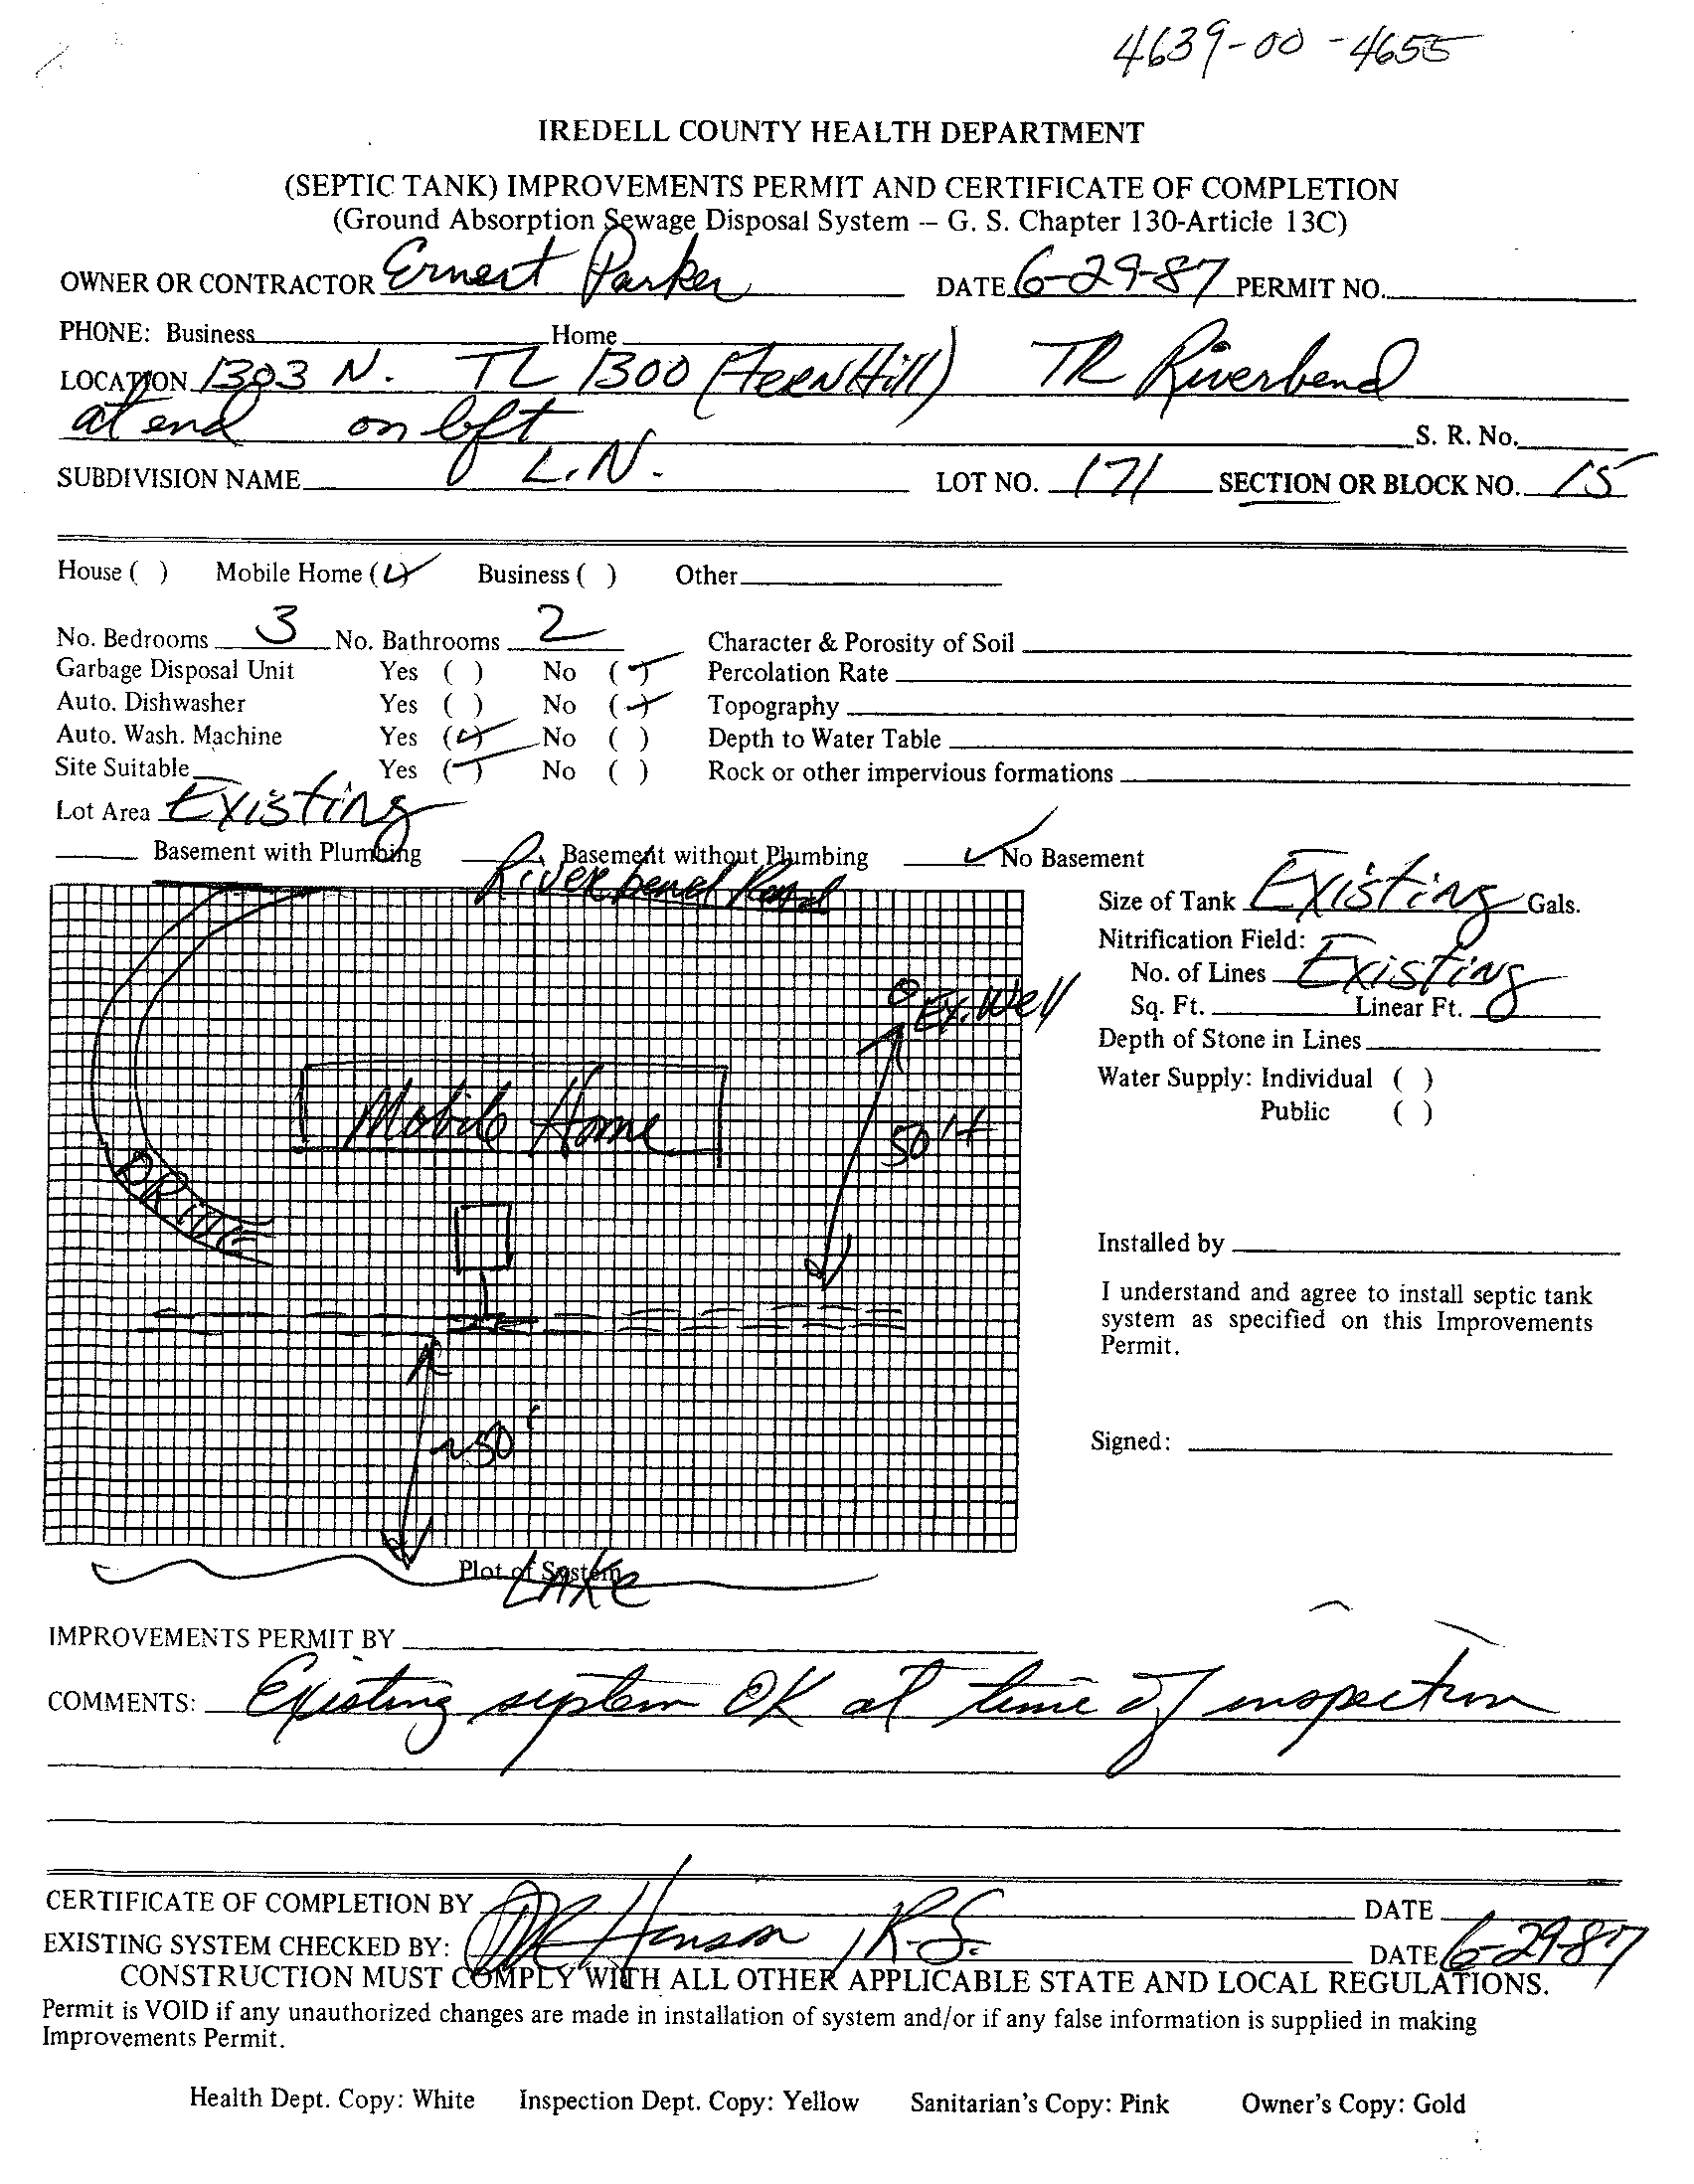 4639-00-4655
IREDELL COUNTY HEALTH DEPARTMENT
(SEPTIC TANK) IMPROVEMENTS PERMIT AND CERTIFICATE OF COMPLETION
(Ground Absorption Sewage Disposal System -- G. S. Chapter 130-Article 13C)
OWNER OR CONTRACTOR Ernest Parker DATE 6-29-87 PERMIT NO.
PHONE: Business Home
LOCATION 1303 N. TL 1300 (FernHill) TR Riverbend
at end on left S. R. No.
SUBDIVISION NAME L.N. LOT NO. 171 SECTION OR BLOCK NO. 15
House ( ) Mobile Home (✓) Business ( ) Other
No. Bedrooms 3 No. Bathrooms 2 Character & Porosity of Soil
Garbage Disposal Unit Yes ( ) No (✓) Percolation Rate
Auto. Dishwasher Yes ( ) No (✓) Topography
Auto. Wash. Machine Yes (✓) No ( ) Depth to Water Table
Site Suitable Yes (✓) No ( ) Rock or other impervious formations
Lot Area Existing
Basement with Plumbing Basement without Plumbing ✓ No Basement
Riverbend Road
Size of Tank Existing Gals.
Nitrification Field:
No. of Lines Existing
Sq. Ft. Linear Ft.
Ex. Well
Depth of Stone in Lines
Water Supply: Individual ( )
Public ( )
Mobile Home
50'+
DRIVE
Installed by
I understand and agree to install septic tank
system as specified on this Improvements
Permit.
~50'
Signed:
Plot of System
LAKE
IMPROVEMENTS PERMIT BY
COMMENTS: Existing system OK at time of inspection
CERTIFICATE OF COMPLETION BY DATE
EXISTING SYSTEM CHECKED BY: Henson, R.S. DATE 6-29-87
CONSTRUCTION MUST COMPLY WITH ALL OTHER APPLICABLE STATE AND LOCAL REGULATIONS.
Permit is VOID if any unauthorized changes are made in installation of system and/or if any false information is supplied in making
Improvements Permit.
Health Dept. Copy: White Inspection Dept. Copy: Yellow Sanitarian's Copy: Pink Owner's Copy: Gold